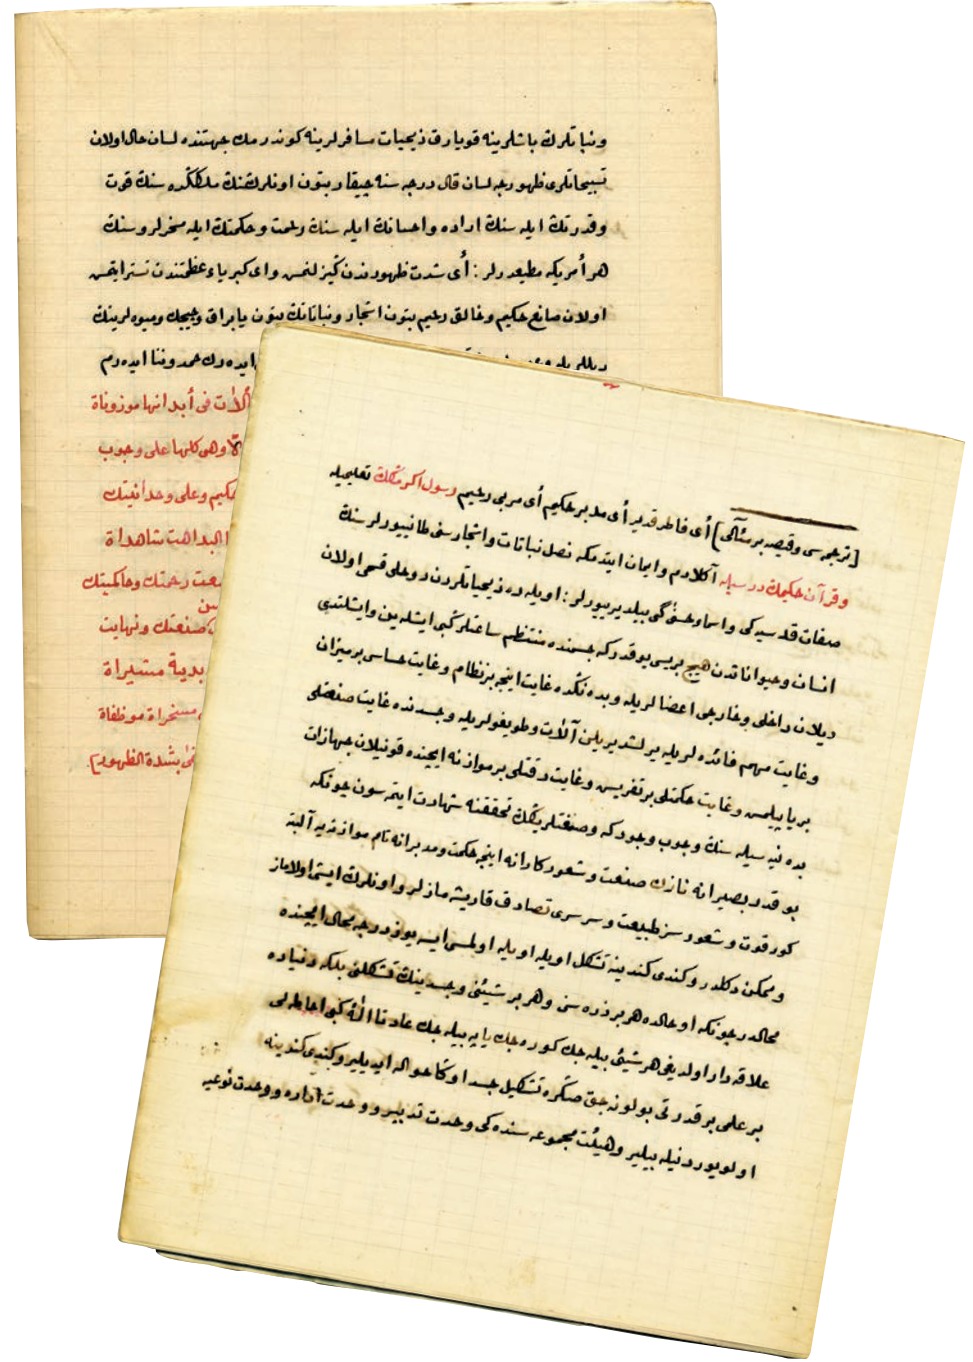 ونباتلرك باشلرينه قويارق ذيحيات مسافرلرينه كوندرمك جهتنده لسان حال اولان
تسبيحاتلرى ظهورجه لسان قال درجه سنه چيقار بتون اونلرك سنك ملككده سنك قوت
وقدرتك ايله سنك اراده و احسانك ايله سنك رحمت و حكمتك ايله مسخرلر و سنك
هر أمريكه مطيعدرلر : أى شدت ظهورندن گيزلنمش واى كبرياء عظمتندن تسترايتمش
اولان صانع حكيم و خالق رحيم بتون اشجار و نباتاتك بتون ياپراق و چيچك و ميوه لرينك
ديللريله
ايده رك حمد و ثنا ايده رم
ألآت فى أبدانها موزوناة
وهى كلها على وجوب
حكيم وعلى وحدانيتك
البداهت شاهداة
رحمتك وحاكميتك
صنعتك ونهايت
مستيراة
مسخراة موظفاة
بشدة الظهور].
[ترجمه سى و قيصه بر مئآلى] أى فاطر قدير أى مدبر حكيم أى مربى رحيم رسول اكرمڭك تعليميله
و قرآن حكيمك درسيله آكلادم و ايمان ايتدمكه نصل نباتات و اشجار سنى طانييورلر سنك
صفات قدسيه كى و اسماء حسنى گى بيلديرييورلر : اويله ده ذيحياتلردن روحلى قسمى اولان
انسان و حيواناتدن هيچ بريسى يوقدركه جسمنده منتظم ساعتلر كبى ايشله ين و ايشلتديـ
ريلان داخلى و خارجى اعضالريله و بدننده غايت اينجه بر نظام و غايت حساس بر ميزان
و غايت مهم فائده لريله يرلشديريلن آلات و طويغولريله و جسدنده غايت صنعتلى
بر ياپيلمش و غايت حكمتلى بر تفريش و غايت دقتلى بر موازنه ايچنده قونيلان جهازات
بدنيه سيله سنك وجوب وجودكه و صفتلريڭك تحققنه شهادت ايتمه سون چونكه
بو قدر بصيرانه نازك صنعت و شعوركارانه اينجه حكمت و مدبرانه تام موازنه يه آلبته
كور قوت و شعورسز طبيعت و سرسرى تصادف قاريشه مازلر و اونلرك ايشى اولاماز
و ممكن دكلدر و كندى كندينه تشكل ايدوب اويله اولمسى ايسه يوز درجه محال ايچنده
محالدر چونكه او حالده هر بر ذره سى و هر بر شيئنى و جسدينك تشكلنى بلكه دنياده
علاقه دار اولديغى هر شيئنى بيله جك كوره جك ياپه بيله جك عادتا الٰه كبى احاطه لى
بر علمى بر قدرتى بولونه جق صڭره تشكيل جسد اوڭا حواله ايديلير و كندى كندينه
اولويور دنيله بيلير و هيئت مجموعه سنده كى وحدت تدبير و وحدت اداره و وحدت نوعيه